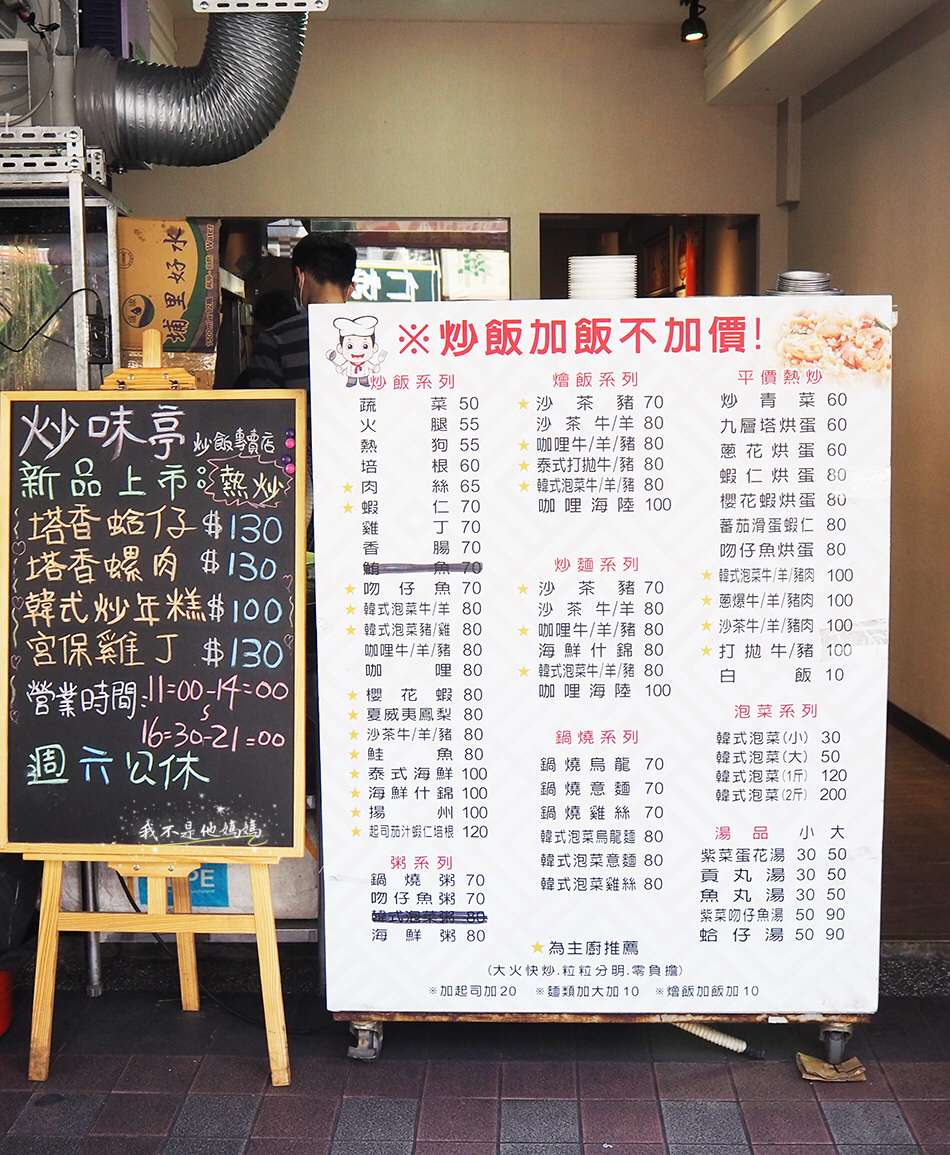 埔里好水
Water
炒味亭 炒飯專賣店
新品上市: 熱炒
塔香蛤仔 $130
塔香螺肉 $130
韓式炒年糕 $100
宮保雞丁 $130
營業時間:11:00-14:00
16:30-21:00
週六公休
我不是他媽媽
※炒飯加飯不加價!
炒飯系列
蔬菜 50
火腿 55
熱狗 55
培根 60
★肉絲 65
★蝦仁 70
雞丁 70
香腸 70
鮪魚 70
★吻仔魚 70
★韓式泡菜牛/羊 80
★韓式泡菜豬/雞 80
咖哩牛/羊/豬 80
咖哩 80
★櫻花蝦 80
★夏威夷鳳梨 80
★沙茶牛/羊/豬 80
★鮭魚 80
★泰式海鮮 100
★海鮮什錦 100
★揚州 100
★起司茄汁蝦仁培根 120
粥系列
鍋燒粥 70
吻仔魚粥 70
韓式泡菜粥 80
海鮮粥 80
燴飯系列
★沙茶豬 70
沙茶牛/羊 80
★咖哩牛/羊/豬 80
★泰式打拋牛/豬 80
★韓式泡菜牛/羊/豬 80
咖哩海陸 100
炒麵系列
★沙茶豬 70
沙茶牛/羊 80
★咖哩牛/羊/豬 80
海鮮什錦 80
★韓式泡菜牛/羊/豬 80
咖哩海陸 100
鍋燒系列
鍋燒烏龍 70
鍋燒意麵 70
鍋燒雞絲 70
韓式泡菜烏龍麵 80
韓式泡菜意麵 80
韓式泡菜雞絲 80
平價熱炒
炒青菜 60
九層塔烘蛋 60
蔥花烘蛋 60
蝦仁烘蛋 80
櫻花蝦烘蛋 80
蕃茄滑蛋蝦仁 80
吻仔魚烘蛋 80
★韓式泡菜牛/羊/豬肉 100
★蔥爆牛/羊/豬肉 100
★沙茶牛/羊/豬肉 100
★打拋牛/豬 100
白飯 10
泡菜系列
韓式泡菜(小) 30
韓式泡菜(大) 50
韓式泡菜(1斤) 120
韓式泡菜(2斤) 200
湯品 小 大
紫菜蛋花湯 30 50
貢丸湯 30 50
魚丸湯 30 50
紫菜吻仔魚湯 50 90
蛤仔湯 50 90
★為主廚推薦
(大火快炒.粒粒分明.零負擔)
※加起司加20 ※麵類加大加10 ※燴飯加飯加10